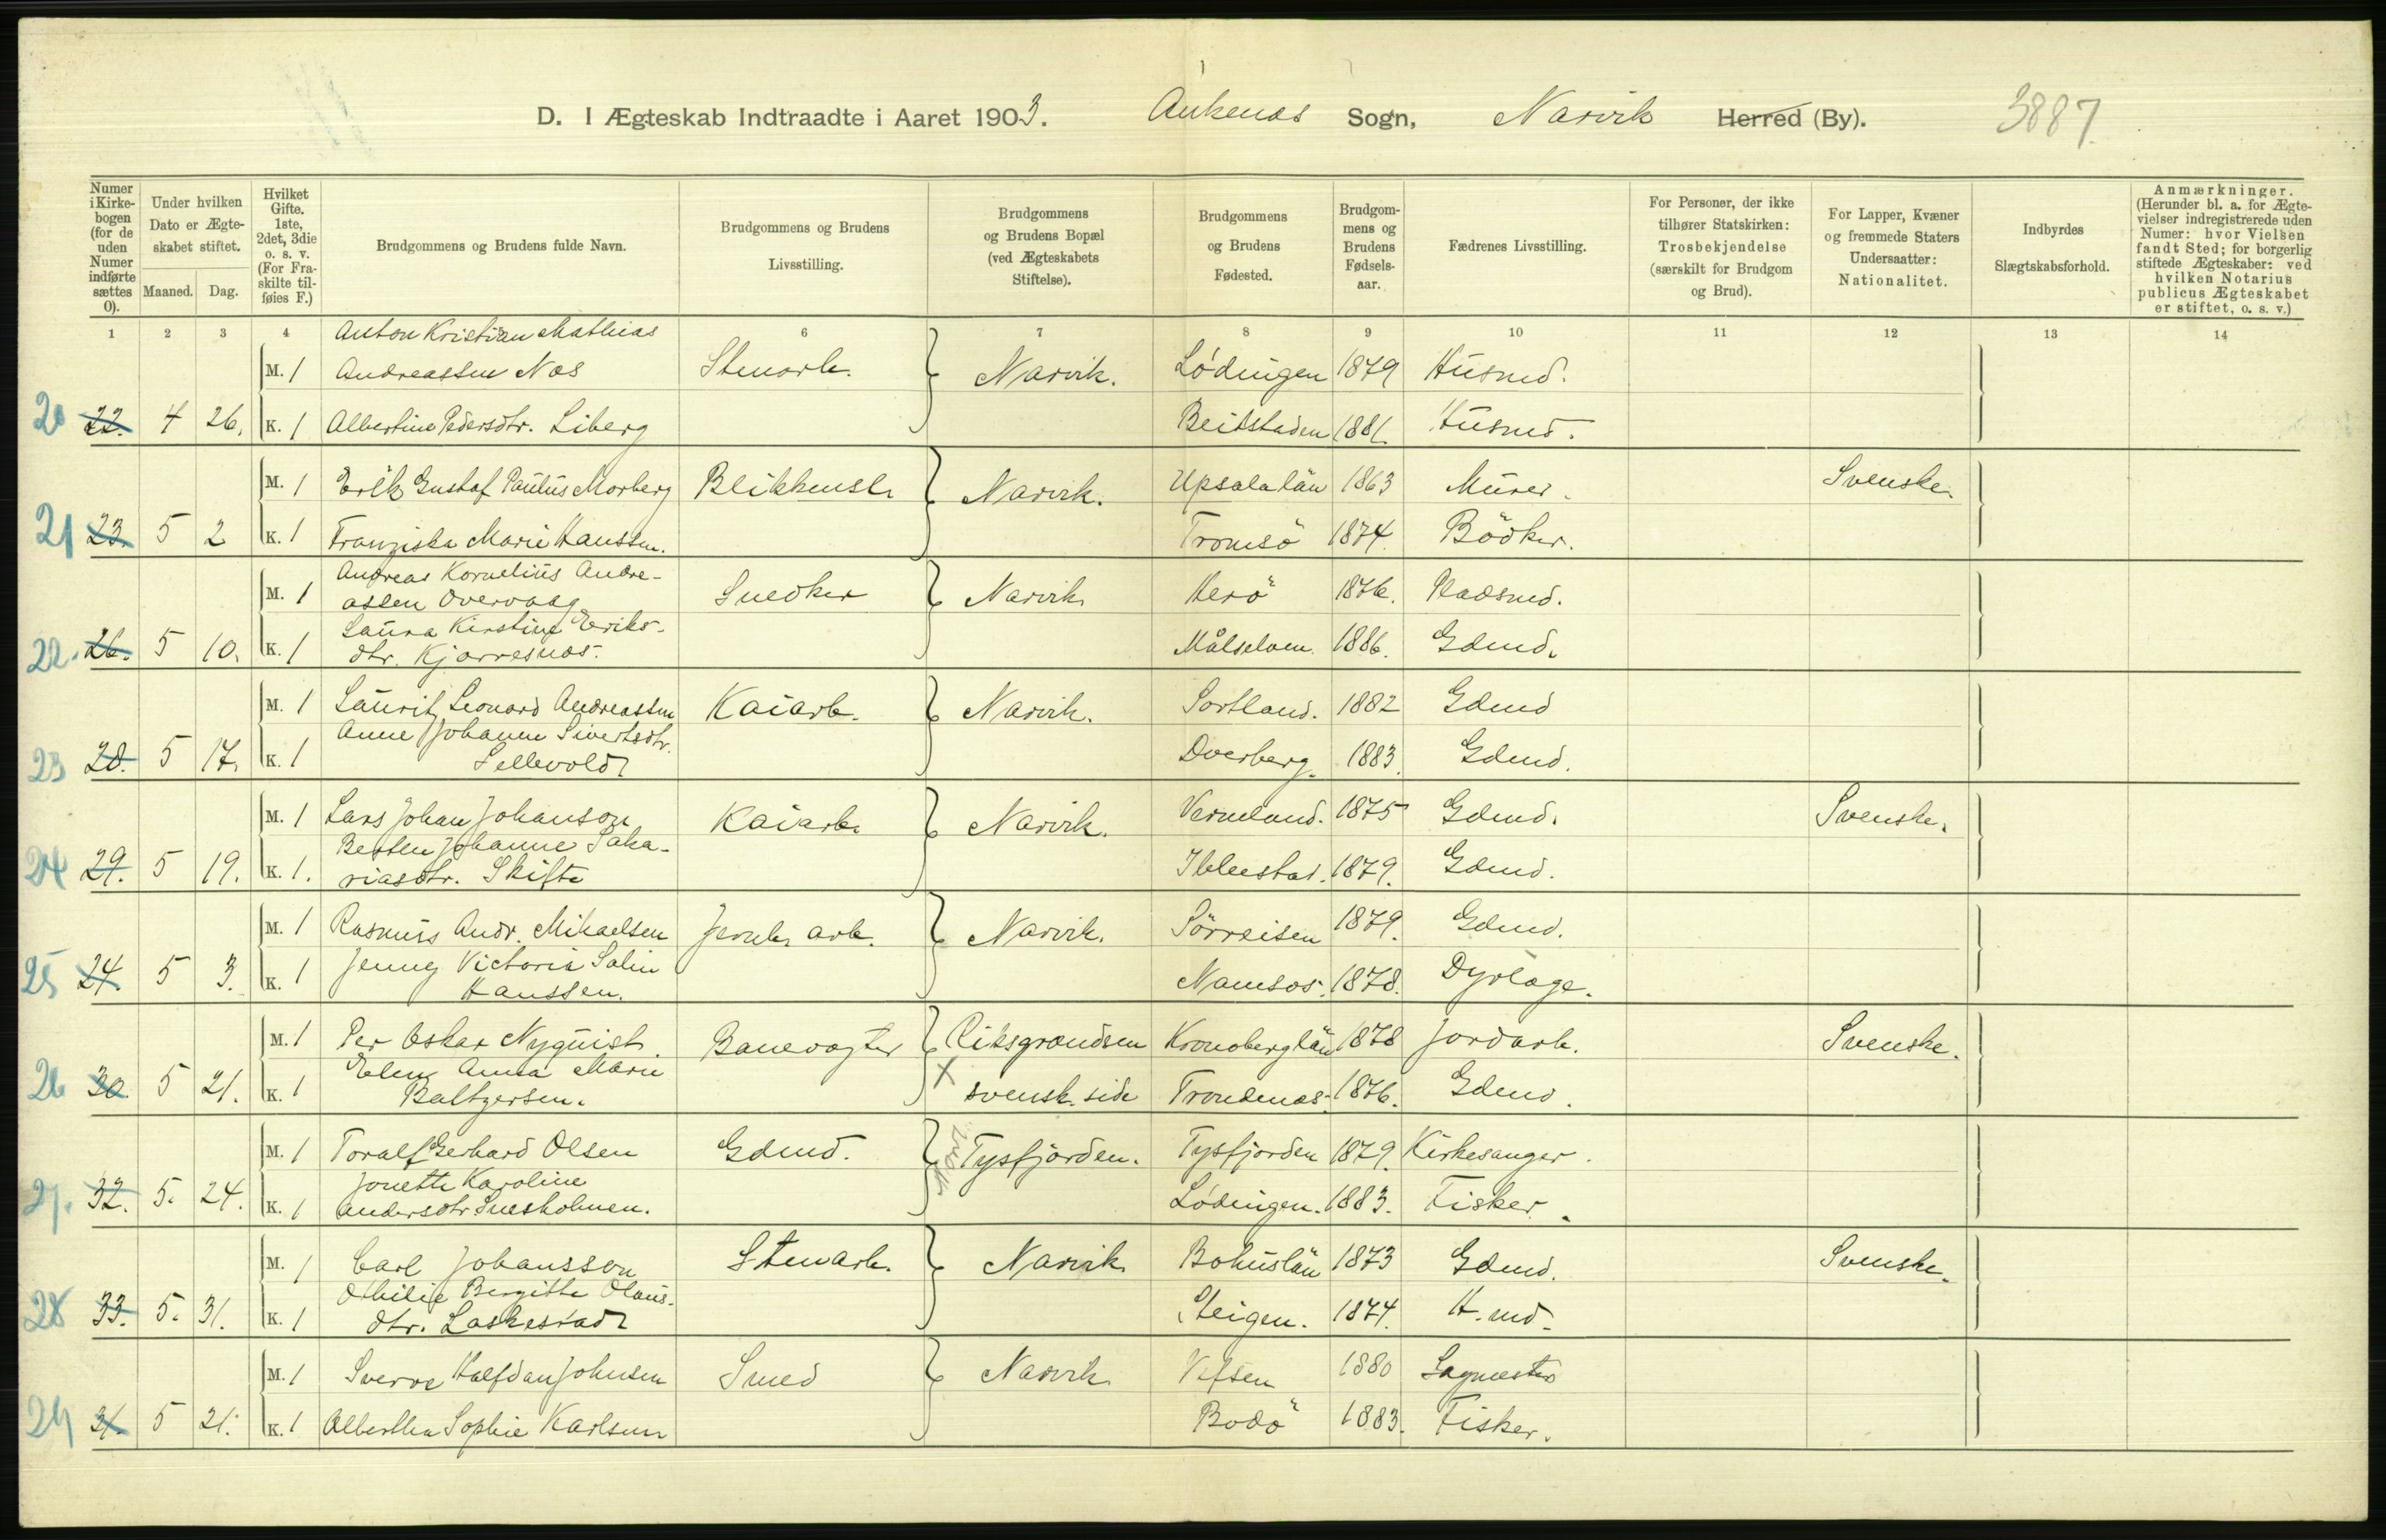 D. I Ægteskab Indtraadte i Aaret 1903. Ankenæs Sogn, Narvik Herred (By). 3887.
Numer i Kirkebogen (for de uden Numer indførte sættes 0). | Under hvilken Dato er Ægteskabet stiftet. Maaned. Dag. | Hvilket Gifte. 1ste, 2det, 3die o. s. v. (For Fraskilte tilføies F.) | Brudgommens og Brudens fulde Navn. | Brudgommens og Brudens Livsstilling. | Brudgommens og Brudens Bopæl (ved Ægteskabets Stiftelse). | Brudgommens og Brudens Fødested. | Brudgommens og Brudens Fødselsaar. | Fædrenes Livsstilling. | For Personer, der ikke tilhører Statskirken: Trosbekjendelse (særskilt for Brudgom og Brud). | For Lapper, Kvæner og fremmede Staters Undersaatter: Nationalitet. | Indbyrdes Slægtskabsforhold. | Anmærkninger. (Herunder bl. a. for Ægtevielser indregistrerede uden Numer: hvor Vielsen fandt Sted; for borgerlig stiftede Ægteskaber: ved hvilken Notarius publicus Ægteskabet er stiftet, o. s. v.)
1 2 3 4 6 7 8 9 10 11 12 13 14
Anton Kristian Mathias
M. 1 Andreassen Næs Stenarb. Narvik. Lødingen 1879 Husmd.
20 22. 4 26. K. 1 Albertine Pedersdtr. Liberg Beitstaden 1881. Husmd.
M. 1 Erik Gustaf Paulus Morberg Blikkensl. Narvik. Upsala län 1863 Murer. Svenske.
21 23. 5 2 K. 1 Franziska Marie Hanssen. Tromsö 1874. Bödker.
Andreas Kornelius Andre-
M. 1 assen Overvaag Snedker Narvik Herö 1876. Pladsmd.
Laura Kirstine Eriks-
22. 26. 5 10. K. 1 dtr. Kjærresnæs. Målselven. 1886. Gdmd.
M. 1 Lauritz Leonard Andreassen Kaiarb. Narvik. Sortland. 1882 Gdmd
Anne Johanne Sivertsdtr.
23 28. 5 17. K. 1 Sellevold Dverberg. 1883. Gdmd.
M. 1 Lars Johan Johanson Kaiarb. Narvik. Vermland. 1875 Gdmd. Svenske.
Berten Johanne Saka-
24 29. 5 19. K. 1. riasdtr. Skifte Ibbestad. 1879. Gdmd.
M. 1 Rasmus Andr. Mikaelsen Jernb. arb. Narvik. Sörreisen 1879. Gdmd.
Jenny Victoria Salin
25 24. 5 3. K. 1 Hanssen. Namsos. 1878. Dyrlæge.
M. 1 Per Oskar Nyquist. Banevogter Riksgrændsen Kronoberg län 1878 Jordarb. Svenske.
Elen Anna Marie
26 30. 5 21. K. 1 Baltzersen. X svensk side Trondenæs. 1876. Gdmd.
M. 1 Toralf Gerhard Olsen Gdmd. Tysfjorden. Tysfjorden 1879. Kirkesanger.
Jonette Karoline
27. 32. 5. 24. K. 1 Andersdtr Snesholmen. Lødingen. 1883. Fisker.
M. 1 Carl Johansson Stenarb. Narvik Bohuslän 1873 Gdmd. Svenske.
Othilie Bergitte Olaus-
28 33. 5. 31. K. 1 dtr. Laskestad Steigen. 1874. H.md.
M. 1 Sverre Halfdan Johnsen Smed Narvik Vefsen 1880 Sagmester
29 31. 5 21. K. 1 Alberthea Sophie Karlsen Bodö 1883. Fisker.